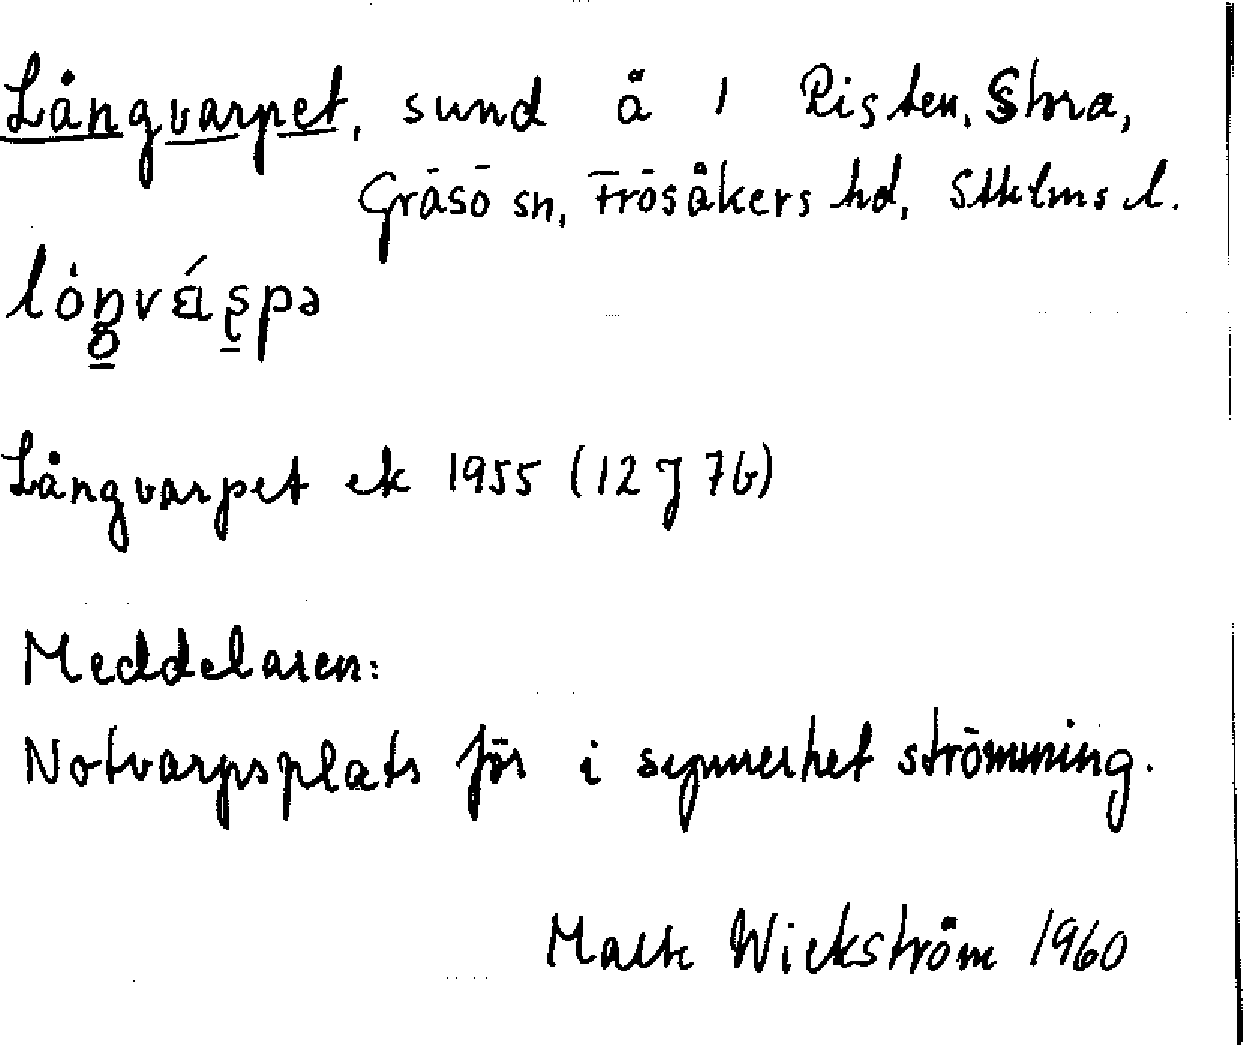 Långvarpet, sund å 1 Risten, Stora,
Gräsö sn, Frösåkers hd, Sthlms l.
Långvarpet ek 1955 (12 J 7b)
Meddelaren:
Notvarpsplats för i synnerhet strömming.
Maits Wickström 1960